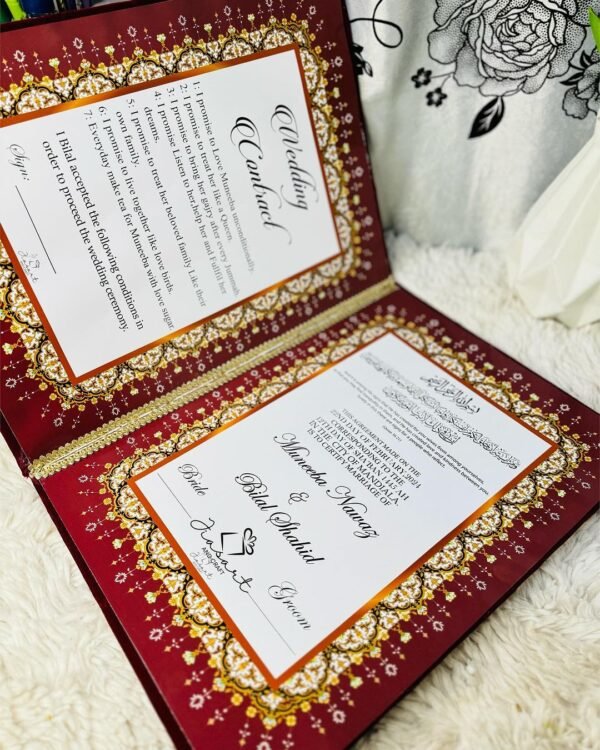 Wedding
Contract
1: I promise to Love Muneeba unconditionally.
2: I promise to treat her like a Queen.
3: I promise to bring her gajry after every Jummah
4: I promise Listen to her,help her and Fulfil her
dreams.
5: I promise to treat her beloved family Like their
own family.
6: I promise to live together like love birds.
7: Everyday make tea for Muneeba with love sugar.
I Bilal accepted the following conditions in
order to proceed the wedding ceremony.
Sign:
بسم الله الرحمن الرحيم
THIS AGREEMENT MADE ON THE
22ND DAY OF FEBRUARY 2024
CORRESPONDING TO THE
DAY OF SHA'BAN 1445 AH
IN THE CITY OF MANDIALA.
IS TO CERTIFY MARRIAGE OF
Muneeba Nawaz
&
Bilal Shahid
Bride
Groom
AND CRAFT